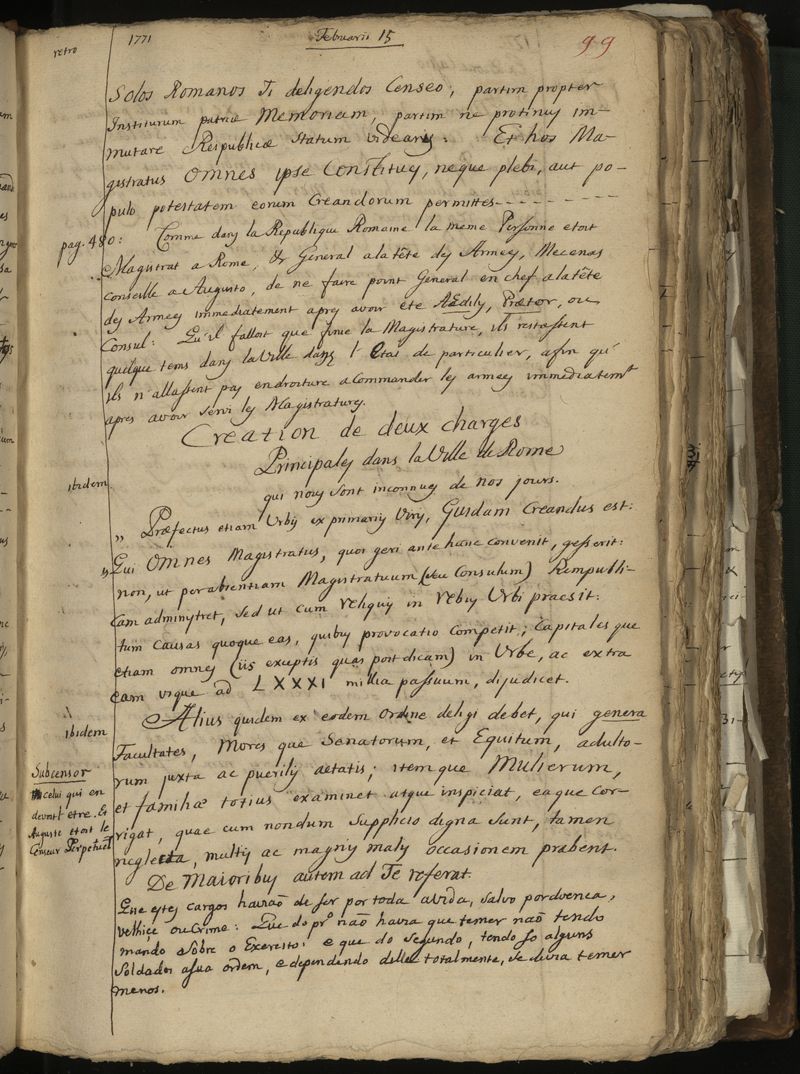 retro
1771
Februarii 15
99
Solos Romanos Ti deligendos Censeo, partim propter
Institutum patriæ Memoriam, partim ne protinus im-
mutare Reipublicæ statum videaris: Et hos Ma-
gistratus Omnes ipse Constitues, neque plebi, aut po-
pulo potestatem eorum Creandorum permittes---------
pag. 480:
Comme dans la Republique Romaine la meme Personne etoit
Magistrat a Rome, & General a la tête des Armes, Mecenas
Conseille a Augusto, de ne faire point General en chef a la tête
des Armes immediatement apres avoir eté AEdilis, Prætor, ou
Consul: Qu'il falloit que finie la Magistrature, ils restassent
quelque tems dans la Ville dans l'Etat de particulier, afin qu'
ils n'allassent pas en droiture a Commander les armes immediatemt
apres avoir servi les Magistratures.
Creation de deux charges
Principales dans la Ville de Rome
qui nous sont inconnues de nos jours.
ibidem
" Præfectus etiam Urbis ex primariis Viris, Quidam Creandus est:
" Qui Omnes Magistratus, quos geri ante hanc convenit, gesserit:
non, ut per absentiam Magistratuum (seu Consulum) Rempubli-
cam administret, sed ut cum reliquis in rebus Urbi praesit:
tum Causas quoque eas, quibus provocatio Competit; Capitales que
etiam omnes (iis exceptis quas post dicam) in Urbe, ac extra
eam usque ad LXXXI millia passuum, dijudicet.
ibidem
Alius quidem ex eodem Ordine deligi debet, qui genera
Facultates, Mores que Senatorum, et Equitum, adulto-
rum juxta ac puerilis aetatis; item que Mulierum,
et familiæ totius examinet atque inspiciat, ea que Cor-
rigat, quae cum nondum Supplicio digna sunt, tamen
neglecta, multis ac magnis malis occasionem præbent.
Subcensor
celui qui en
devoit etre. Et
Auguste etoit le
Censeur Perpetuel
De Maioribus autem ad Te referat
Que estes cargos havião de ser por toda a vida, salvo por doenca,
velhice ou Crime: Que do pro. não havia que temer não tendo
mando sobre o Exercito: e que do segundo, tendo so alguns
Soldados a sua ordem, e dependendo delle totalmente, se devia temer
menos.